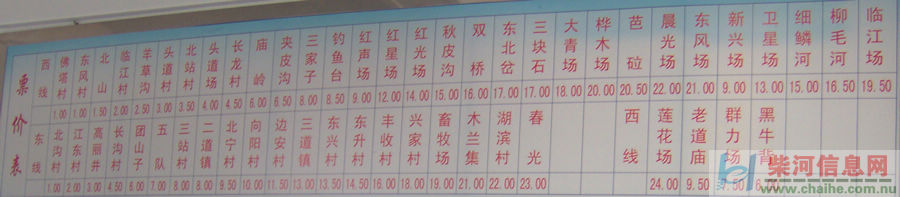 票价表
西线 佛塔村 东风村 北山 临江村 羊草沟 头道村 北站村 头道场 长龙村 庙岭 夹皮沟 三家子 钓鱼台 红声场 红星场 红光场 秋皮沟 双桥 东北岔 三块石 大青场 桦木场 芭砬 晨光场 东风场 新兴场 卫星场 细鳞河 柳毛河 临江场
1.00 1.00 1.50 2.00 2.50 3.00 3.50 4.00 4.50 6.00 7.00 8.00 8.50 9.00 12.00 14.00 15.00 16.00 17.00 17.00 18.00 20.00 20.50 22.00 21.00 9.00 13.00 15.00 16.50 19.50
东线 北沟村 江东村 高丽井 长沟村 团山子 五队 三站村 二道镇 北宁村 向阳村 边安村 三道镇 东兴村 东升村 丰收村 兴家村 畜牧场 木兰集 湖滨村 春光 西线 莲花场 老道庙 群力场 黑牛背
1.00 2.00 3.00 4.00 6.00 7.00 8.00 8.00 9.50 10.00 11.50 13.00 13.50 14.50 16.00 18.00 19.00 21.00 22.00 23.00 24.00 9.50
柴河信息网
www.chaihe.com.nu